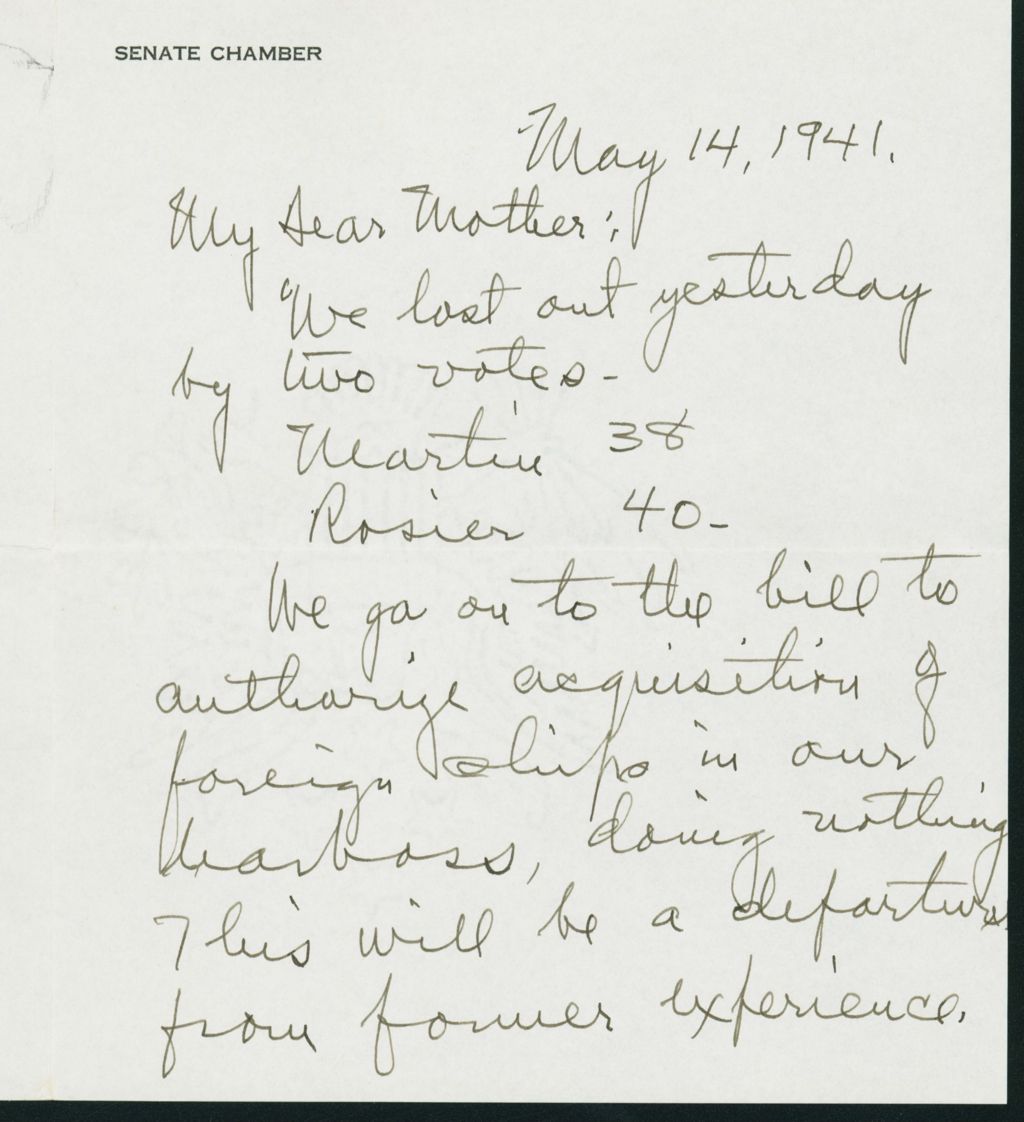 SENATE CHAMBER
May 14, 1941.
My Dear Mother:
We lost out yesterday
by two votes -
Martin 38
Rosier 40 -
We go on to the bill to
authorize acquisition of
foreign ships in our
harbors, doing nothing
This will be a departure
from former experience.